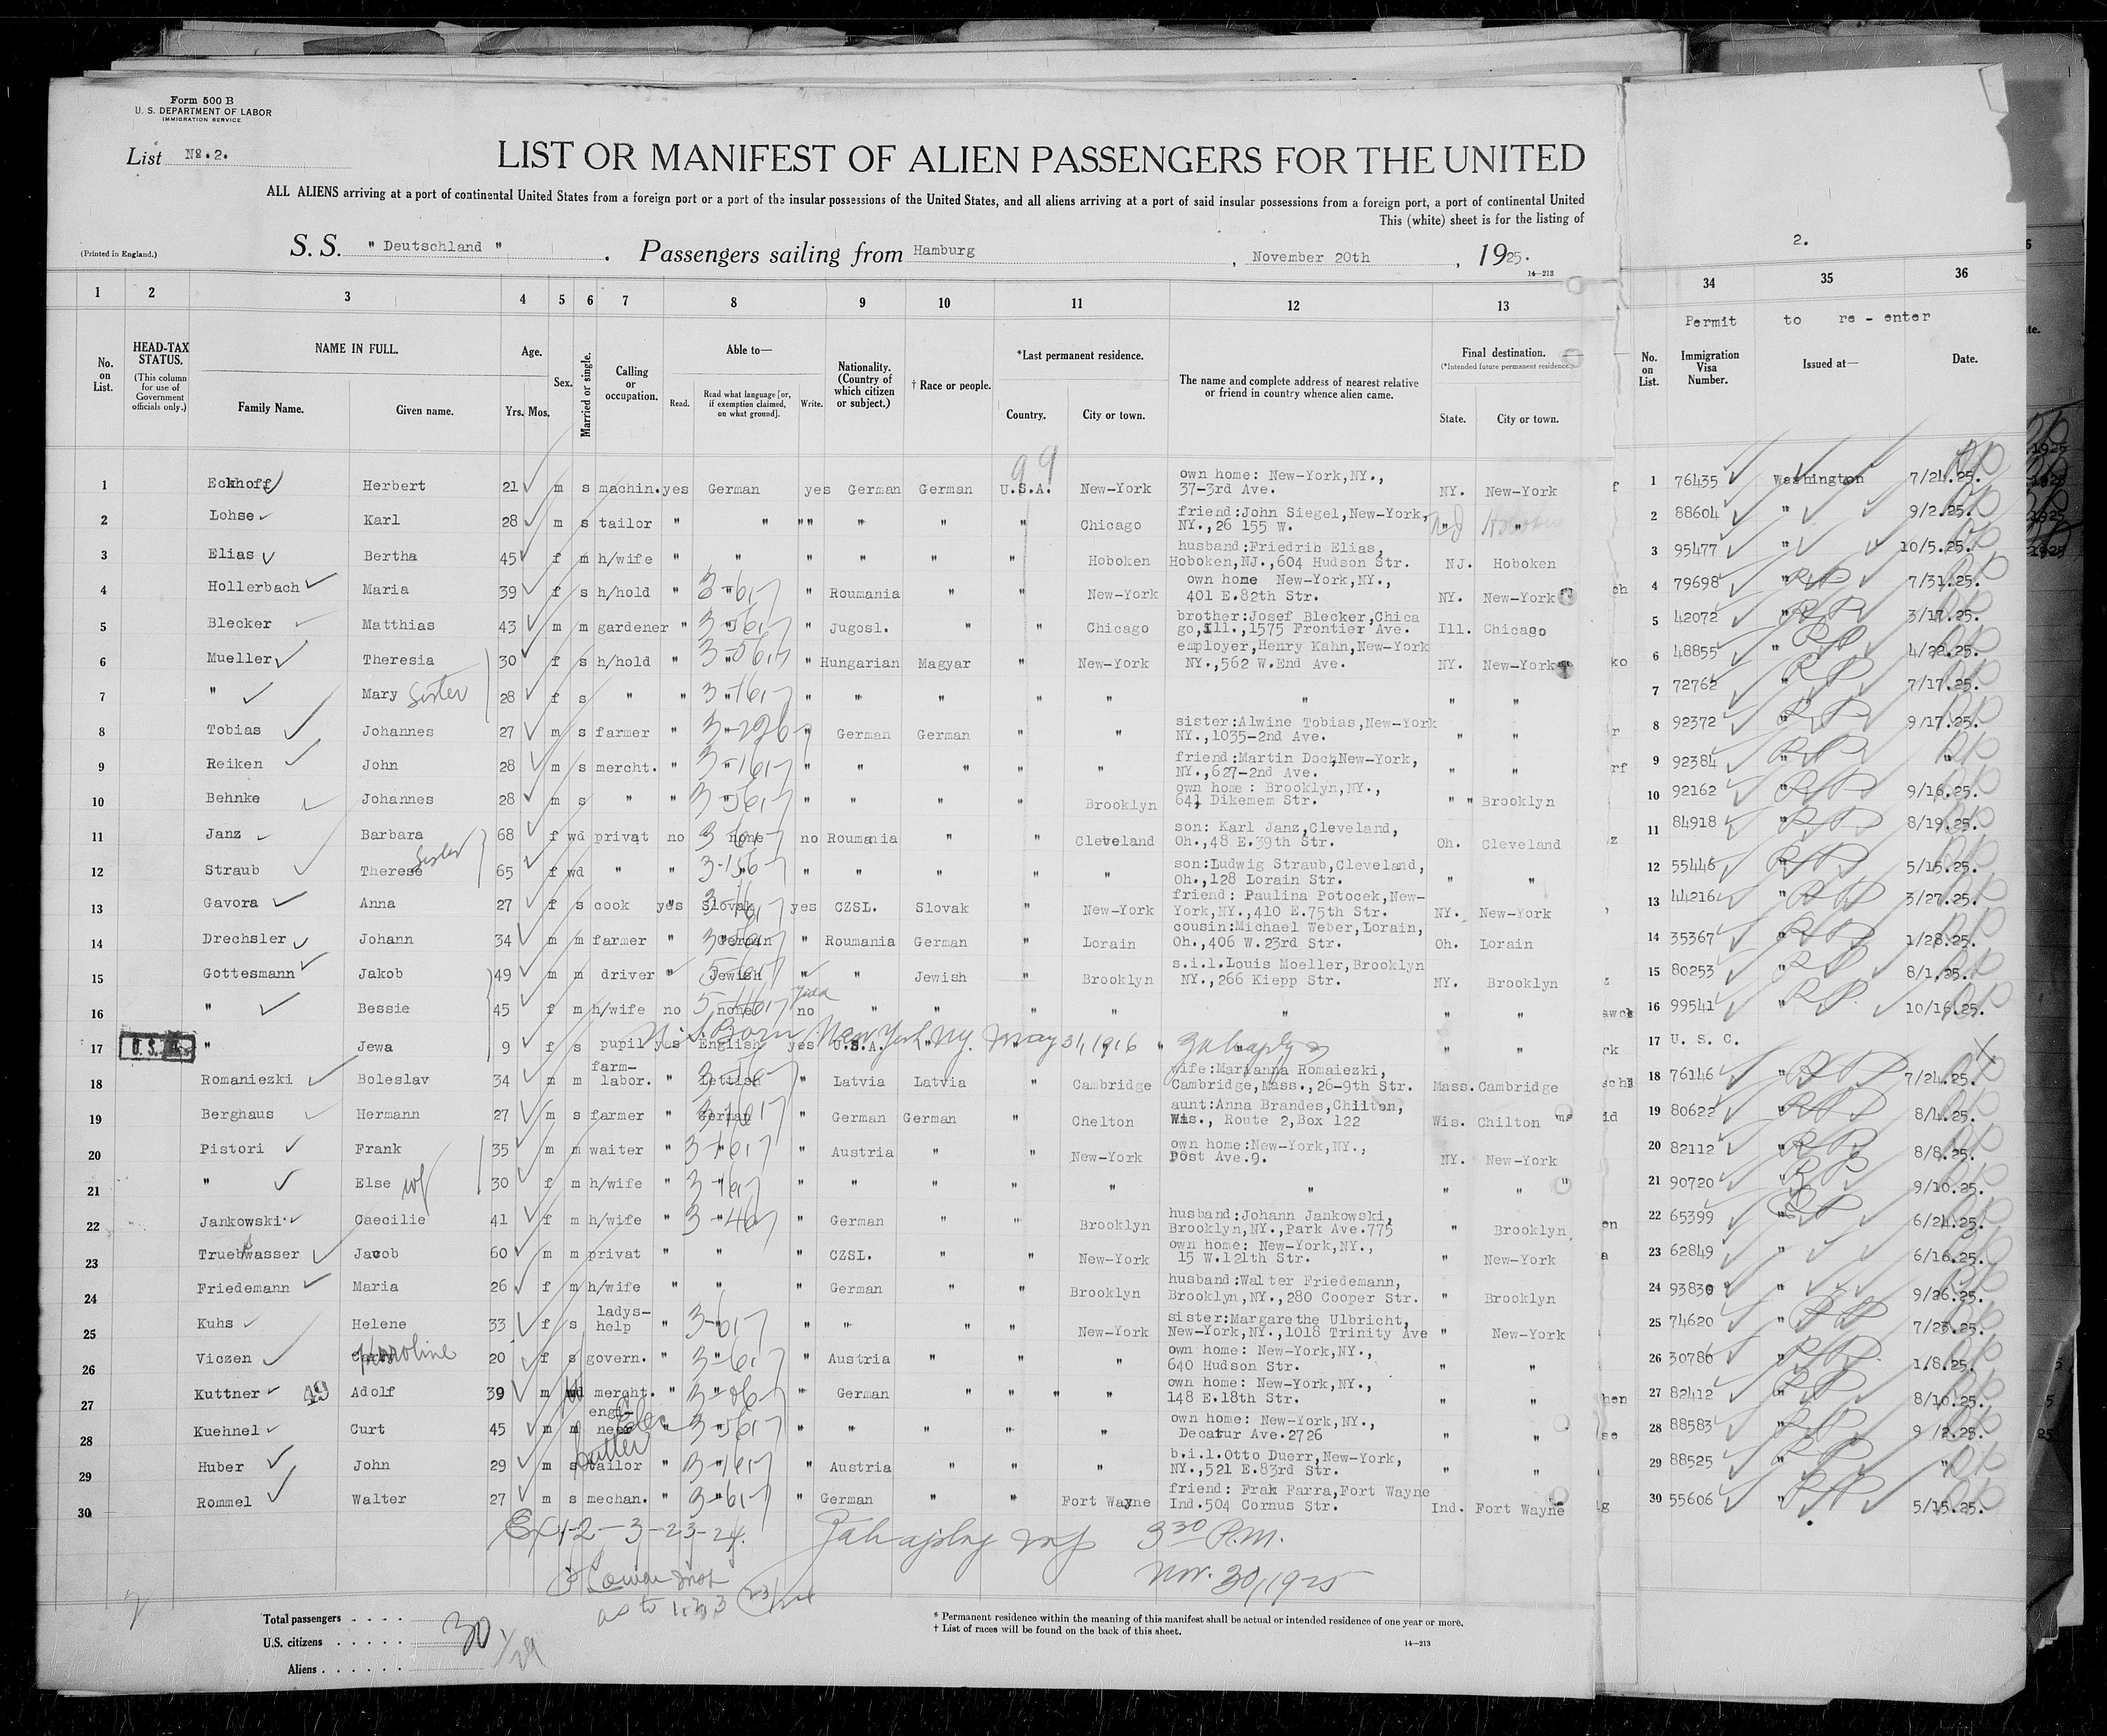 Form 500 B
U. S. DEPARTMENT OF LABOR
IMMIGRATION SERVICE
List No.2.
LIST OR MANIFEST OF ALIEN PASSENGERS FOR THE UNITED
ALL ALIENS arriving at a port of continental United States from a foreign port or a port of the insular possessions of the United States, and all aliens arriving at a port of said insular possessions from a foreign port, a port of continental United
This (white) sheet is for the listing of
(Printed in England.)
S. S. " Deutschland " . Passengers sailing from Hamburg , November 20th , 1925.
14—213
2.
1 2 3 4 5 6 7 8 9 10 11 12 13 34 35 36
Permit to re - enter
No. on List.
HEAD-TAX STATUS. (This column for use of Government officials only.)
NAME IN FULL.
Family Name. Given name.
Age. Yrs. Mos.
Sex.
Married or single.
Calling or occupation.
Able to—
Read. Read what language [or, if exemption claimed, on what ground]. Write.
Nationality. (Country of which citizen or subject.)
† Race or people.
*Last permanent residence.
Country. City or town.
The name and complete address of nearest relative or friend in country whence alien came.
Final destination.
(*Intended future permanent residence.)
State. City or town.
No. on List.
Immigration Visa Number.
Issued at—
Date.
99
1 Eckhoff Herbert 21 m s machin. yes German yes German German U.S.A. New-York own home: New-York,NY., 37-3rd Ave. NY. New-York 1 76435 Washington 7/24.25.
2 Lohse Karl 28 m s tailor " " "" " " " Chicago friend:John Siegel,New-York, NY.,26 155 W. " " 2 88604 " 9/2.25.
3 Elias Bertha 45 f m h/wife " " " " " " Hoboken husband:Friedrih Elias, Hoboken,NJ.,604 Hudson Str. NJ. Hoboken 3 95477 " 10/5.25.
4 Hollerbach Maria 39 f s h/hold " " " Roumania " " New-York own home New-York,NY., 401 E.82th Str. NY. New-York 4 79698 " 7/31.25.
5 Blecker Matthias 43 m m gardener " " " Jugosl. " " Chicago brother:Josef Blecker,Chica go,Ill.,1575 Frontier Ave. Ill. Chicago 5 42072 " 3/17.25.
6 Mueller Theresia 30 f s h/hold " " " Hungarian Magyar " New-York employer,Henry Kahn,New-York NY.,562 W.End Ave. NY. New-York 6 48855 " 4/22.25.
7 " Mary Sister 28 f s " " " " " " " " " " " 7 72762 " 7/17.25.
8 Tobias Johannes 27 m s farmer " " " German German " " sister:Alwine Tobias,New-York NY.,1035-2nd Ave. " " 8 92372 " 9/17.25.
9 Reiken John 28 m s mercht. " " " " " " " friend:Martin Doch,New-York, NY.,627-2nd Ave. " " 9 92384 " "
10 Behnke Johannes 28 m s " " " " " " " Brooklyn own home : Brooklyn,NY., 641 Dikemem Str. " " Brooklyn 10 92162 9/16.25.
11 Janz Barbara 68 f wd privat no none no Roumania " " Cleveland son: Karl Janz,Cleveland, Oh.,48 E.39th Str. Oh. Cleveland 11 84918 " 8/19.25.
12 Straub Therese Sister 65 f wd " " " " " " " " son:Ludwig Straub,Cleveland, Oh.,128 Lorain Str. " " 12 55446 " 5/15.25.
13 Gavora Anna 27 f s cook yes Slovak yes CZSL. Slovak " New-York friend: Paulina Potocek,New-York,NY.,410 E.75th Str. NY. New-York 13 44216 " 3/27.25.
14 Drechsler Johann 34 m m farmer " German " Roumania German " Lorain cousin:Michael Weber,Lorain, Oh.,406 W.23rd Str. Oh. Lorain 14 35367 " 1/28.25.
15 Gottesmann Jakob 49 m m driver " Jewish " " Jewish " Brooklyn s.i.l.Louis Moeller,Brooklyn NY.,266 Kiepp Str. NY. Brooklyn 15 80253 " 8/1.25.
16 " Bessie 45 f m h/wife no none no " " " " " " " 16 99541 " 10/16.25.
U.S. Born New York NY. May 31, 1916
17 " Jewa 9 f s pupil yes English yes U.S.A. " " " " " " 17 U. S. C.
18 Romaniezki Boleslav 34 m m farm-labor. " Lettish " Latvia Latvia " Cambridge wife:Marianna Romaiezki, Cambridge,Mass.,26-9th Str. Mass. Cambridge 18 76146 " 7/24.25.
19 Berghaus Hermann 27 m s farmer " German " German German " Chelton aunt:Anna Brandes,Chilton, Wis., Route 2,Box 122 Wis. Chilton 19 80622 " 8/4.25.
20 Pistori Frank 35 m m waiter " " " Austria " " New-York own home:New-York,NY., Post Ave.9. NY. New-York 20 82112 " 8/8.25.
21 " Else wf 30 f m h/wife " " " " " " " " " " 21 90720 " 9/10.25.
22 Jankowski Caecilie 41 f m h/wife " " " German " " Brooklyn husband:Johann Jankowski, Brooklyn,NY.,Park Ave.775 " Brooklyn, 22 65399 " 6/24.25.
23 Truebwasser Jacob 60 m m privat " " " CZSL. " " New-York own home: New-York,NY., 15 W.121th Str. " New-York 23 62849 " 6/16.25.
24 Friedemann Maria 26 f m h/wife " " " German " " Brooklyn husband:Walter Friedemann, Brooklyn,NY.,280 Cooper Str. " Brooklyn 24 93830 " 9/26.25.
25 Kuhs Helene 33 f s ladys-help " " " " " " New-York sister:Margarethe Ulbricht, New-York,NY.,1018 Trinity Ave " New-York 25 74620 " 7/23.25.
26 Viczen Karoline 20 f s govern. " " " Austria " " " own home: New-York,NY., 640 Hudson Str. " " 26 30786 " 1/8.25.
27 Kuttner 49 Adolf 39 m wd mercht. " " " German " " " own home: New-York,NY., 148 E.18th Str. " " 27 82412 " 8/10.25.
28 Kuehnel Curt 45 m m engi-neer " " " " " " " own home: New-York,NY., Decatur Ave.2726 " " 28 88583 " 9 /2.25.
29 Huber John 29 m s tailor cutter " " " Austria " " " b.i.l.Otto Duerr,New-York, NY.,521 E.83rd Str. " " 29 88525 " "
30 Rommel Walter 27 m s mechan. " " " German " " Fort Wayne friend: Frak Farra,Fort Wayne Ind.504 Cornus Str. Ind. Fort Wayne 30 55606 " 5/15.25.
Ex 1-2-3-23-24.
3 30 P.M.
Nov. 30, 1925
as to 1,2,3
Total passengers . . . .
U.S. citizens . . . . .
30 1/29
Aliens . . . . . .
* Permanent residence within the meaning of this manifest shall be actual or intended residence of one year or more.
† List of races will be found on the back of this sheet.
14—213